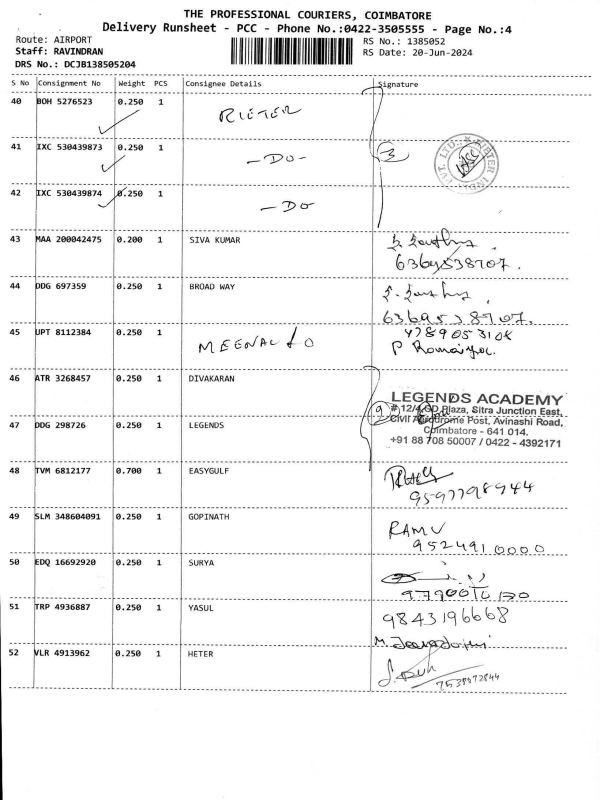 THE PROFESSIONAL COURIERS, COIMBATORE
Delivery Runsheet - PCC - Phone No.:0422-3505555 - Page No.:4
Route: AIRPORT
Staff: RAVINDRAN
DRS No.: DCJB138505204
RS No.: 1385052
RS Date: 20-Jun-2024
S No Consignment No Weight PCS Consignee Details Signature
40 BOH 5276523 0.250 1 RIETER
41 IXC 530439873 0.250 1 -DO- 3
42 IXC 530439874 0.250 1 -DO
43 MAA 200042475 0.200 1 SIVA KUMAR
6369538707.
44 DDG 697359 0.250 1 BROAD WAY
6369538707.
45 UPT 8112384 0.250 1 4789053108
P
46 ATR 3268457 0.250 1 DIVAKARAN
LEGENDS ACADEMY
# 12/4 GD Plaza, Sitra Junction East,
Civil Aerodrome Post, Avinashi Road,
Coimbatore - 641 014.
+91 88 708 50007 / 0422 - 4392171
47 DDG 298726 0.250 1 LEGENDS
48 TVM 6812177 0.700 1 EASYGULF
9597798944
49 SLM 348604091 0.250 1 GOPINATH RAMU
9524910000
50 EDQ 16692920 0.250 1 SURYA
51 TRP 4936887 0.250 1 YASUL 9843196668
M.
52 VLR 4913962 0.250 1 HETER